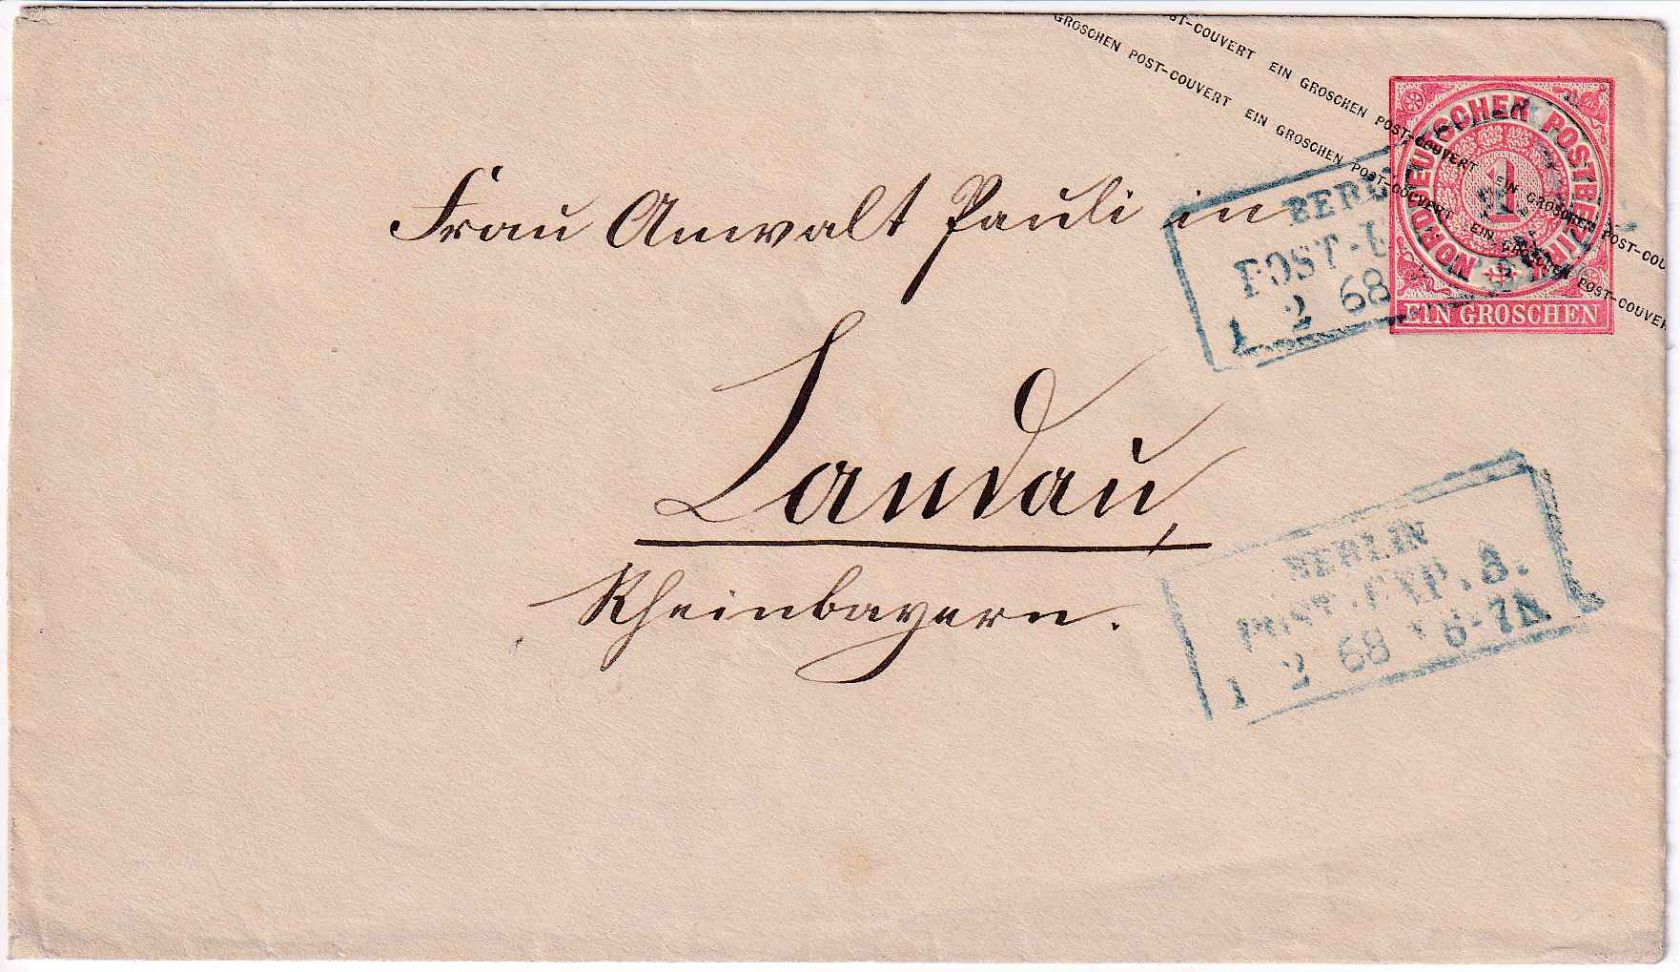 ST-COUVERT EIN GROSCHEN POST-COUVERT EIN GROSCHEN POST-COU
GROSCHEN POST-COUVERT EIN GROSCHEN POST-COUVERT EIN GROSCHEN POST-COUVER
NORDDEUTSCHER POSTBEZIRK
1
EIN GROSCHEN
BERL
POST-E
1 2 68
Frau Anwalt Pauli in
Landau,
Rheinbayern.
BERLIN
POST-EXP. 8.
1 2 68 * 6-7N.